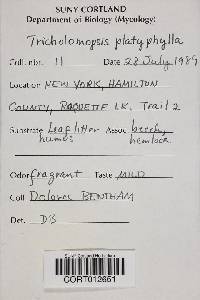 SUNY CORTLAND
Department of Biology (Mycology)
Tricholomopsis platyphylla
Coll. nbr. 11 Date 28 July 1989
Location NEW YORK, HAMILTON
COUNTY, RAQUETTE LK. Trail 2
Substrate Leaf litter Assoc. beech,
humus hemlock
Odor fragrant Taste MILD
Coll Dolores BENTHAM
Det. D'S
CORT012651